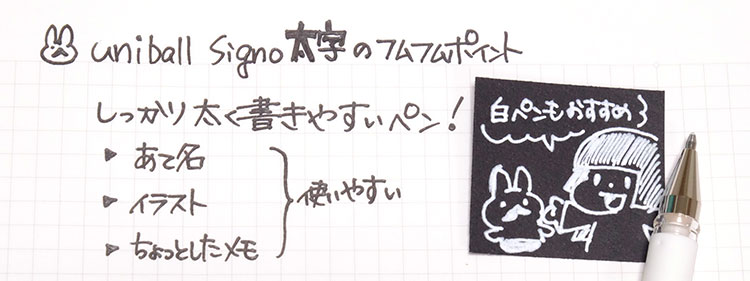 uniball Signo 太字のフムフムポイント
しっかり太く書きやすいペン！
▶ あて名
▶ イラスト
▶ ちょっとしたメモ
使いやすい
白ペンもおすすめ